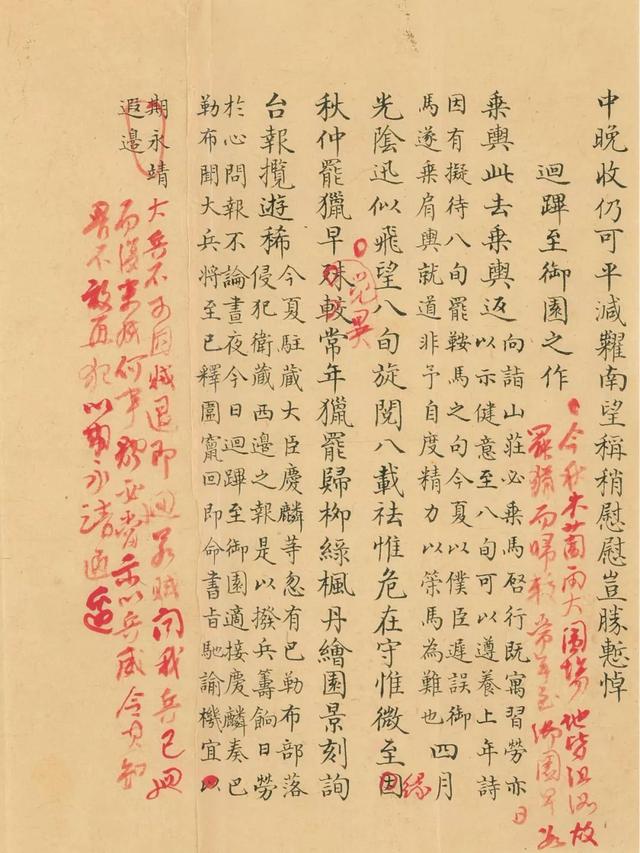 中晚收仍可平減糶南望稱稍慰慰豈勝慙悼
迴蹕至御園之作
今秋木蘭雨大圍場地皆沮洳故
罷獵而歸較常年至御園早
日
乘輿此去乘輿返
向詣山莊必乘馬啓行既寓習勞亦
以示健意至八旬可以遵養上年詩
因有擬待八旬罷鞍馬之句今夏以僕臣遲誤御
馬遂乘肩輿就道非予自度精力以策馬為難也
四月
光陰迅似飛望八旬旋閱八載祛惟危在守惟微至因
緣
覺異
秋仲罷獵早殊較常年獵罷歸柳綠楓丹繪園景刻詢
台報攬遊稀
今夏駐藏大臣慶麟等忽有巴勒布部落
侵犯衛藏西邊之報是以撥兵籌餉日勞
於心問報不論晝夜今日迴蹕至御園適接慶麟奏巴
勒布聞大兵將至已釋圍竄回即命書旨馳諭機宜以
期永靖
遐邊
大兵不可因賊退即迴若賊聞我兵已迴
而復來成何事體必當示以兵威令其知
畏不敢再犯以期永靖遐邊